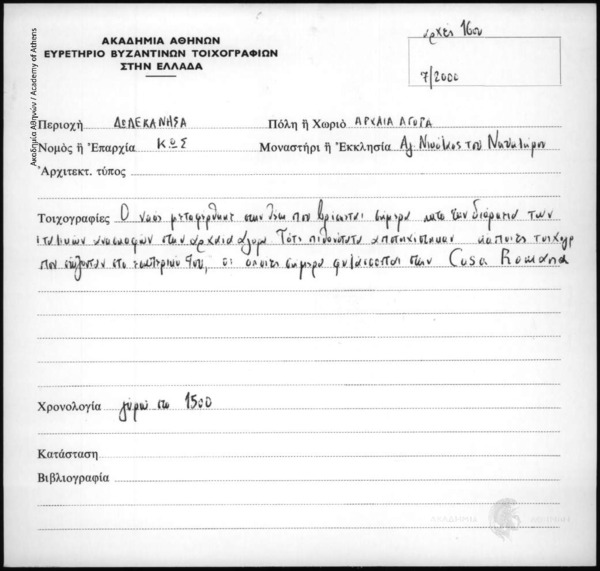 ΑΚΑΔΗΜΙΑ ΑΘΗΝΩΝ
ΕΥΡΕΤΗΡΙΟ ΒΥΖΑΝΤΙΝΩΝ ΤΟΙΧΟΓΡΑΦΙΩΝ
ΣΤΗΝ ΕΛΛΑΔΑ
αρχές 16ου
7/2000
Ακαδημία Αθηνών / Academy of Athens
Περιοχή ΔΩΔΕΚΑΝΗΣΑ Πόλη ἤ Χωριό ΑΡΧΑΙΑ ΑΓΟΡΑ
Νομός ἤ Ἐπαρχία ΚΩΣ Μοναστήρι ἤ Ἐκκλησία Αγ. Νικόλαος του
Ἀρχιτεκτ. τύπος
Τοιχογραφίες Ο ναός μεταφέρθηκε στην θέση που βρίσκεται σήμερα κατά την διάρκεια των
ιταλικών ανασκαφών στην αρχαία αγορά Τότε πιθανότατα αποτοιχίστηκαν κάποιες τοιχογρ
που σώζονταν στο εσωτερικό του, οι οποίες σήμερα φυλάσσονται στην Casa Romana
Χρονολογία γύρω στο 1500
Κατάσταση
Βιβλιογραφία
ΑΚΑΔΗΜΙΑ ΑΘΗΝΩΝ